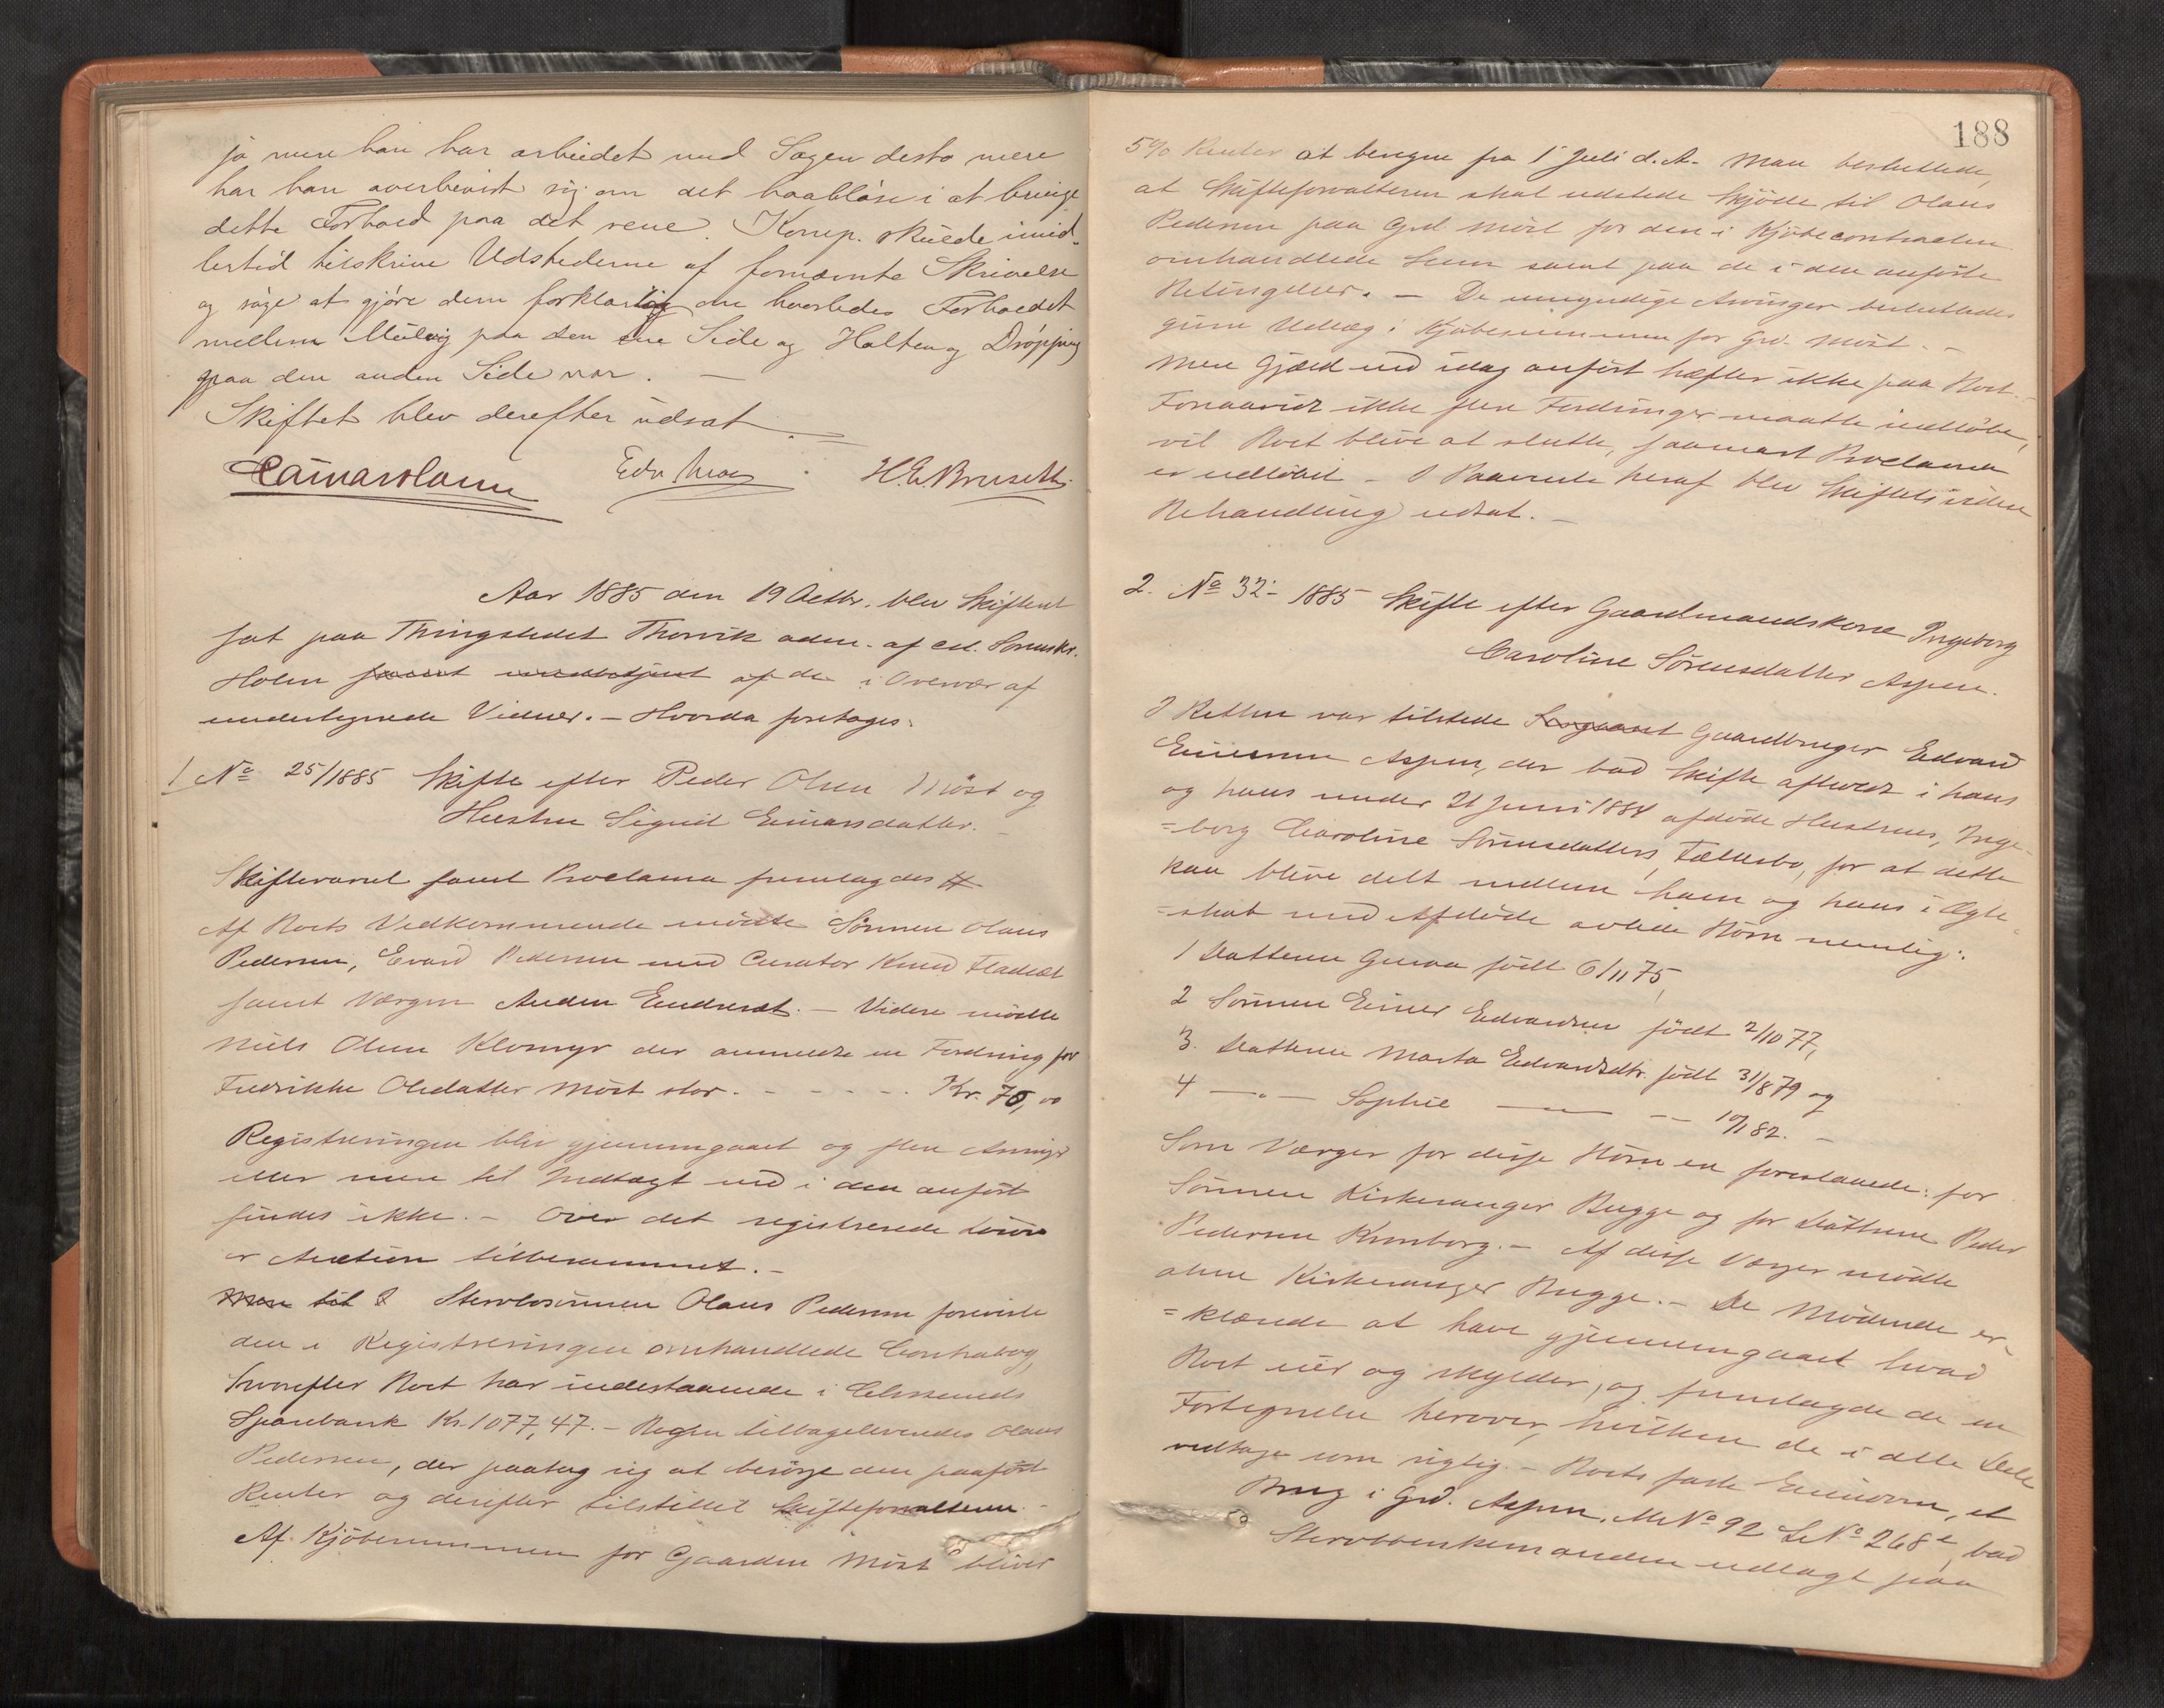 jo mere han har arbeidet med Sagen desto mere
har han overbevist sig om det haabløse i at bringe
dette Forhold paa det rene. Komp. skulde imid-
lertid tilskrive Udstederne af fornævnte Skrivelse
og søge at gjøre dem forklarlig om hvorledes Forholdet
mellem paa den ene Side og Holten og
paa den anden Side var. —
Skiftet blev derefter udsat.
H. E. Bruseth.
Aar 1885 den 19 Octbr. blev Skifteret
sat paa Thingstedet Thorvik adm. af cst. Sorenskr.
Holm samt af de i Overvær af
undertegnede Vidner. — Hvorda foretoges:
1 No 25/1885 Skifte efter Peder Olsen Möst og
Hustru Sigrid Einarsdatter. —
Skiftevarsel samt Proclama fremlagdes
Af Boets Vedkommende mödte Sönnen Olaus
Pedersen, Evard Pedersen med Curator Knud Fladsæt
samt Værgen Anders Endresæt. — Videre mödte
Niels Olsen Klomyr der anmeldte en Fordring for
Fredrikke Olsdatter Möst stor. - - - - - Kr. 70,00
Registreringen blev gjennemgaaet og flere Arvinger
eller mere til Indtægt end i den anfört
findes ikke. — Over det registrerede Lösöre
er Auction tilberammet. —
Mere til I Stervbosönnen Olaus Pedersen foreviste
den i Registreringen omhandlede Contrabog,
hvorefter Boet har indestaaende i
Sparebank Kr. 1077,47. — Bogen tilbageleveredes Olaus
Pedersen, der paatog sig at besörge den paafört
Renter og derefter tilstillet Skifteforvalteren. —
Af Kjöbesummen for Gaarden Möst bliver
188
5% Renter at beregne fra 1 Juli d. A. Man besluttede,
at Skifteforvalteren skal udstede Skjöde til Olaus
Pedersen paa Grd Möst for den i Kjöbecontracten
omhandlede Sum samt paa de i den anförte
Betingelser. — De umyndige Arvinger besluttedes
given Udlæg i Kjöbesummen for Grd. Möst. —
Mere Gjæld end idag anfört hæfter ikke paa Boet. —
Forsaavidt ikke flere Fordringer maatte indlöbe,
vil Boet blive at slutte, saasnart Proclama
er udlöbet — I Paavente heraf blev Skiftets videre
Behandling udsat. —
2. No 32- 1885 Skifte efter Gaardmandskone Ingeborg
Caroline Sörensdatter Aspen.
I Retten var tilstede Gaardbruger Edvard
Einersen Aspen, der bad Skifte afholdt i hans
og hans under 21 Juni 1884 afdöde Hustrues, Inge-
=borg Caroline Sörensdatters, Fællesbo, for at dette
kan blive delt mellem ham og hans i Ægte-
=skab med Afdöde avlede Börn nemlig:
1 Datteren Guroa födt 6/11 75,
2 Sönnen Einer Edvardsen födt 2/10 77,
3. Datteren Marta Edvardsdtr. födt 31/8 79 og
4 —„— Sophie —„— — 10/1 82. —
Som Værger for disse Börn er foreslaaede: for
Sönnen Kirkesanger Bugge og for Döttrene Peder
Pedersen Kronborg. — Af disse Værger mödte
alene Kirkesanger Bugge. — De Mödende er-
=klærede at have gjennemgaaet hvad
Boet eier og skylder, og fremlagde de en
Fortegnelse herover, hvilken de i alle Dele
vedtoges som rigtig. — Boets faste Eiendom, et
Brug i Grd. Aspen, M No 92 L No 268e, bad
Stervboenkemanden udlagt paa